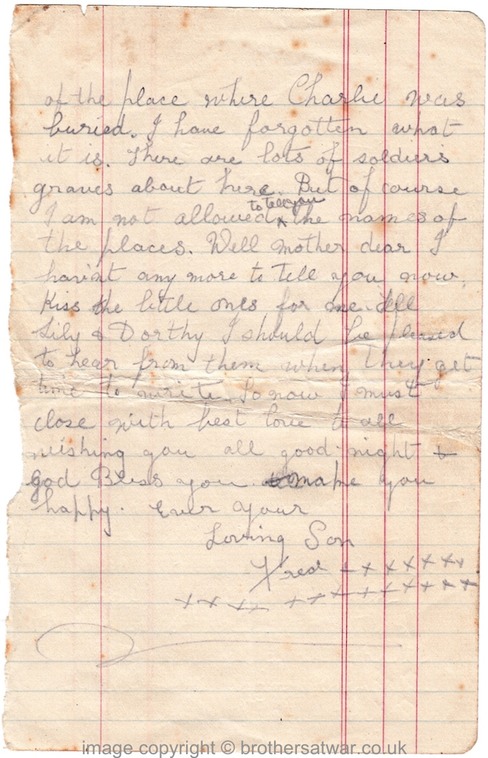 of the place where Charlie was
buried. I have forgotten what
it is. There are lots of soldiers
graves about here. But of course
I am not allowed ^to tell you the names of
the places. Well mother dear I
havint any more to tell you now.
Kiss the little ones for me. Tell
Lily & Dorthy I should be pleased
to hear from them when they get
time to write. So now I must
close with best love to all
wishing you all good night &
god Bless you & make you
happy. Ever your
Loving Son
Fred x x x x x x x
x x x x x x x x x x x x
image copyright © brothersatwar.co.uk